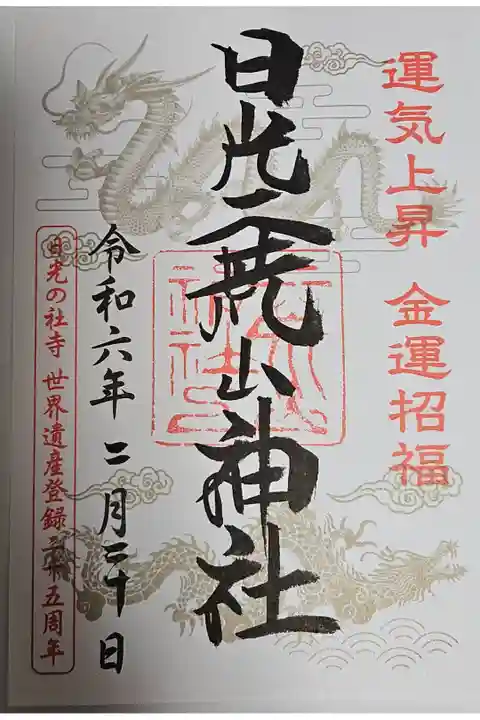 運気上昇　金運招福
日光二荒山神社
令和六年 二月二十日
日光の社寺 世界遺産登録二十五周年